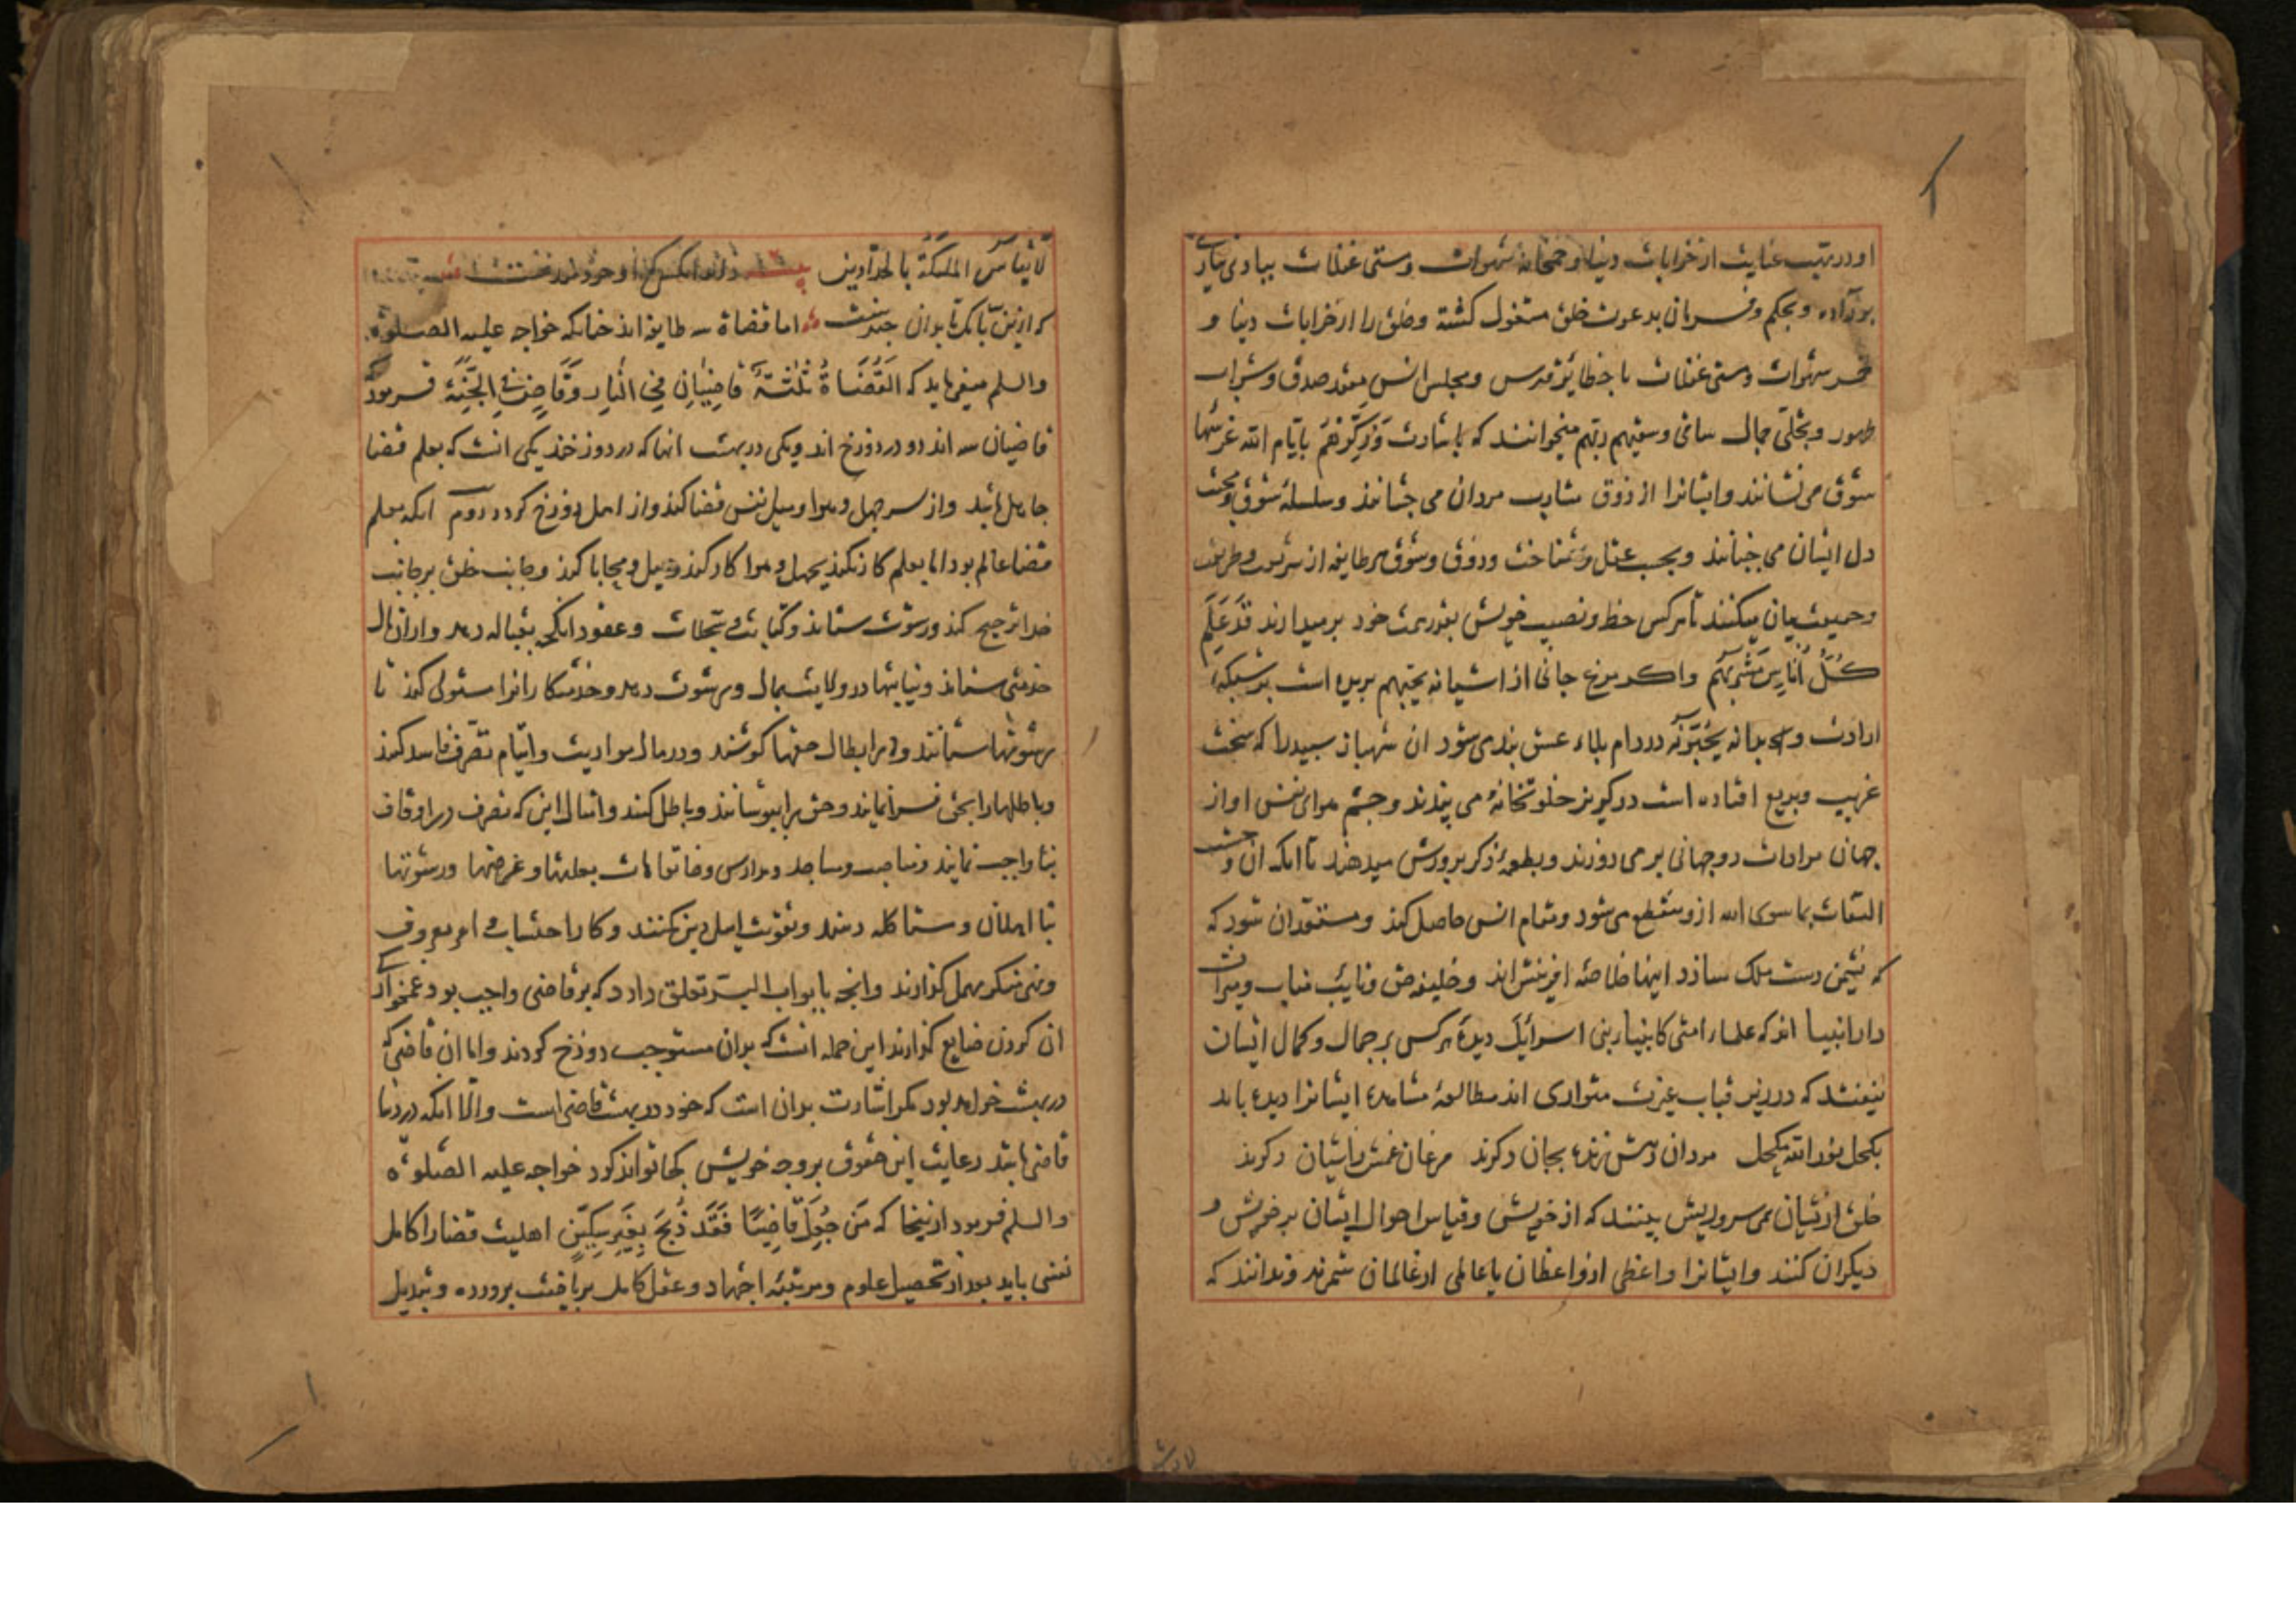 او در تهیت عنایت از خرابات دنیا و خمخانه شهوات و مستی غفلات بیادی
برون آمده و بحکم و فرمان بدعوت خلق مشغول کشته و خلق را از خرابات دنیا و
خمر شهوات و مستی غفلات با حظایر قدس و مجلس انس مقعد صدق و شراب
طهور و تجلی جمال ساقی وسقیهم ربهم میخوانند که باشارت وَذَکِّرْهُمْ بایّام الله
شوق می نشانند و ایشانرا از ذوق مشارب مردان می چشانند و سلسلهٔ شوق و محبت
دل ایشان می جنبانند و بحسب عقل و شناخت و ذوق و شوق هر طایفه از شریعت و طریقت
و حقیقت بیان میکنند تا هرکس حظ و نصیب خویش بقدر همت خود برمیدارند قَدْ عَلِمَ
کُلُّ اُنَاسٍ مَشْرَبَهُمْ و اکر مرغ جانی از اشیانه یحبهم پریده است بر شبکهٔ
ارادت و بدانه یُحِبّونَه در دام بلاء عشق بندی شود ان شهباز سپید را که سخت
غریب و بدیع افتاده است در کریز خلوتخانه می بندند و چشم هوای نفس او از
جهان مرادات دوجهانی بر می دوزند و بطعمهٔ ذکر پرورش میدهند تا انکه ان وحشت
التفات بما سوی الله ازو منقطع می شود و مقام انس حاصل کند و مستعد ان شود که
که نشیمن دست ملک سازد اینها خلاصهٔ افرینش اند و خلیفهٔ حق و نایب مناب و میراث
دار انبیا اند که علماء امتی کانبیاء بنی اسرائیل دیدهٔ هرکس بر جمال و کمال ایشان
نیفتد که در زیر قباب عزت متواری اند مطالعهٔ مشاهدهٔ ایشانرا دیده باید
بکحل نورالله مکحل مردان رهش زنده بجان دکرند مرغان زاشیان دکرند
خلق از یشان همی سر و ریش بینند که از خویش و قیاس احوال ایشان بر خویش و
دیکران کنند و ایشانرا واعظی از واعظان یا عالمی از عالمان شمرند و ندانند که
لَا تُقَاسُ الملئکَة بالحدّادین
که ازین تابک تا بدان اما قضاة سه طایفه اند چنانکه خواجه علیه الصلوة
والسلم میفرماید که اَلقُضَاةُ ثَلٰثَةٌ قَاضِیَانِ فِی النَّارِ وَقَاضٍ فِی الجَنَّةِ فرمود
قاضیان سه اند دو در دوزخ اند و یکی در بهشت انها که در دوزخند یکی انست که بعلم قضا
جاهل باشد و از سر جهل و هوا و میل نفس قضا کند و از اهل دوزخ کردد دوم انکه بعلم
قضا عالم بود اما بعلم کار نکند بجهل و هوا کار کند و میل و محابا کند و جانب خلق بر جانب
خدا ترجیح کند و رشوت ستاند و کتابت سجلات و عقود انکحه بقباله دهد و ازان مال
خدمتی ستاند و نیابتها در ولایت بمال و رشوت دهد و خدمتکارانرا مستولی کند تا
رشوتها ستانند و در ابطال حقها کوشند و در مال مواریث و ایتام تصرف فاسد کند
و باطلها را بحق فرا نمایند و حق را بپوشانند و باطل کنند و امثال این که تصرف در اوقاف
بنا واجب نمایند و مناصب و مساجد و مدارس و خانقاهات بعلتها و غرضها و رشوتها
بنا اهلان و ستاکله دهند و تقویت اهل دین نکنند و کار احتساب و امر معروف
و نهی منکر مهمل کذارند و انچه بابواب البرّ تعلق دارد که بر قاضی واجب بود غمخوارکی
ان کردن ضایع کذارند این جمله انست که بدان مستوجب دوزخ کردند و اما ان قاضی که
در بهشت خواهد بود مکر اشارت بدان است که خود در بهشت قاضی است و الّا انکه در دنیا
قاضی باشد رعایت این حقوق بر وجه خویش کجا تواند کرد خواجه علیه الصّلوة
والسلم فرمود ازینجا که مَنْ جُعِلَ قَاضِیًا فَقَدْ ذُبِحَ بِغَیرِ سِکِّینٍ اهلیت قضا را کامل
نفسی باید بعد از تحصیل علوم و مرتبهٔ اجتهاد و عقل کامل بریاضت پرورده و تبدیل